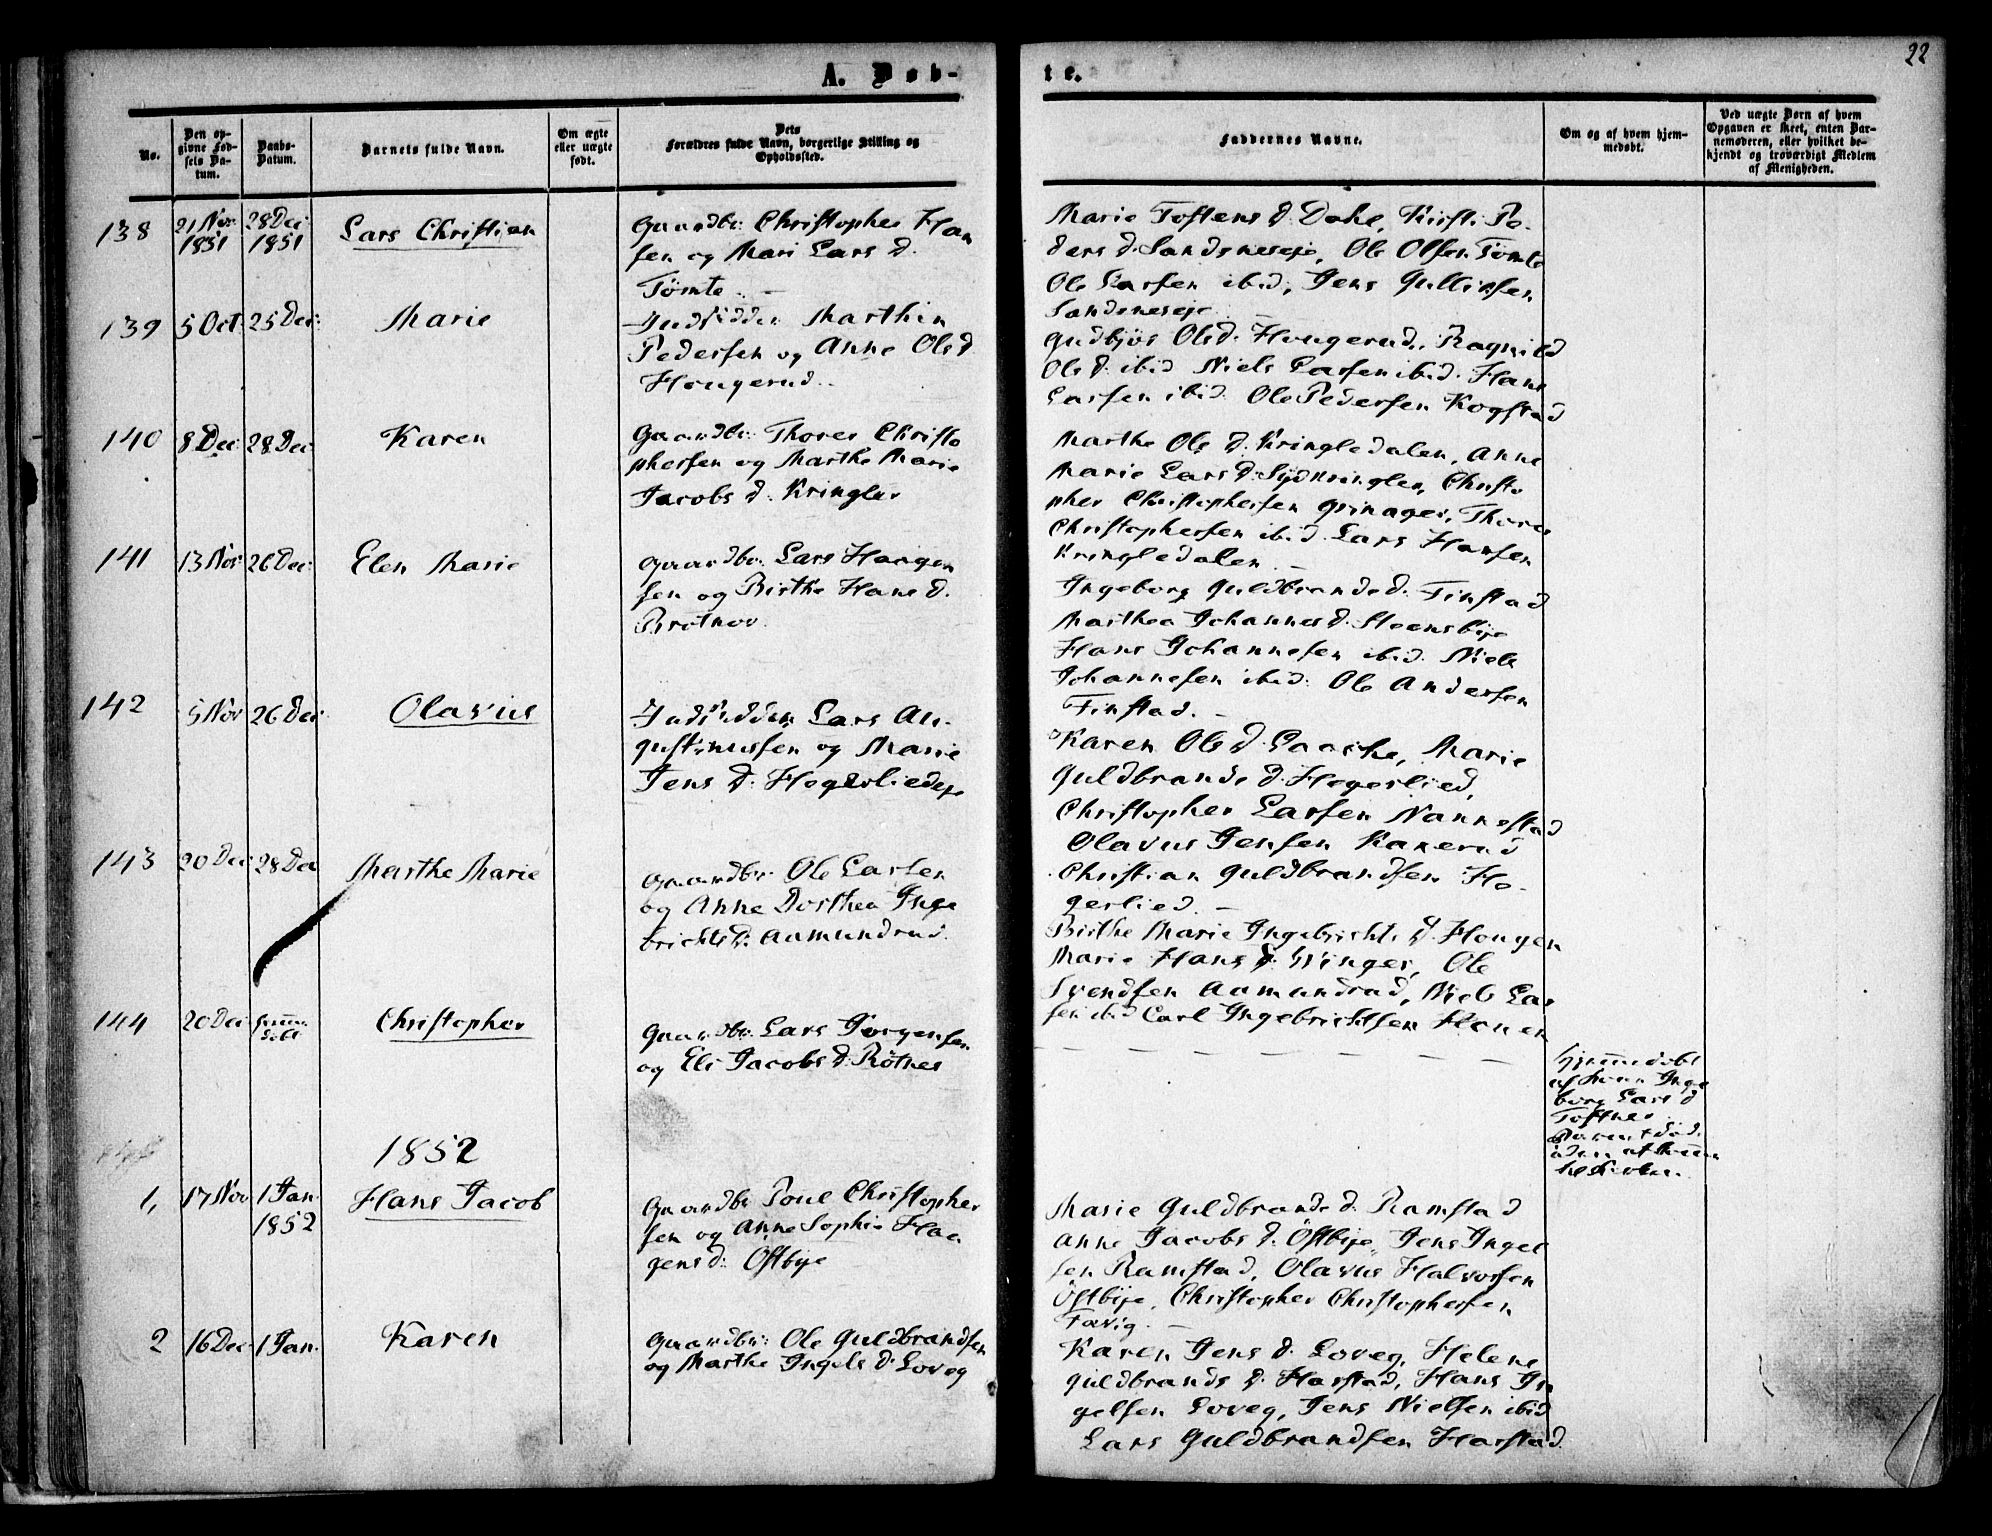 22
A. Døb-
te.
No.
Den op-
givne Fød-
sels Da-
tum.
Daabs-
Datum.
Barnets fulde Navn.
Om ægte
eller uægte
født.
Dets
Forældres fulde Navn, borgerlige Stilling og
Opholdssted.
Faddernes Navne.
Om og af hvem hjem-
medøbt.
Ved uægte Børn af hvem
Opgaven er skeet, enten Bar-
nemoderen, eller hvilket be-
kjendt og troværdigt Medlem
af Menigheden.
138
21 Nov:
1851
28 Dec:
1851
Lars Christian
Gaardbr: Christopher Han
sen og Mari Lars d.
Tömte
Marie Toftens d. Dahl, Kirsti Pe-
ders d. Sandsneseje, Ole Olsen Tömte
Ole Larsen ibid, Jens Gulliksen
Sandsneseje
139
5 Oct:
25 Dec:
Marie
Indsidder Marthin
Pedersen og Anne Ols d
Hougerud.
Gudbjör Olsd. Hougerud, Ragnild
Ols d. ibid Niels Larsen ibid. Hans
Larsen ibid. Ole Pedersen Kogstad
140
8 Dec:
28 Dec:
Karen
Gaardbr: Thores Christo
phersen og Marthe Marie
Jacobs d. Kringler
Marthe Ols d. Kringledalen, Anne
Marie Lars d. Sydkringler, Christo
pher Christophersen Grinager, Thores
Christophersen ibid. Lars Hansen
Kringledalen
141
13 Nov:
26 Dec:
Elen Marie
Gaardbr: Lars Haagen
sen og Birthe Hans d.
Brotnov.
Ingeborg Guldbrands d. Finstad
Marthea Johannes d. Steensbye
Hans Johannesen ibid. Niels
Johannesen ibid: Ole Andersen
Finstad.
142
5 Nov
26 Dec
Olavus
Indsidder Lars Au-
gustinussen og Marie
Jens d. Hegerliedeje
Karen Ols d. Laache, Marie
Guldbrands d. Hegerlied,
Christopher Larsen Nannestad
Olavus Jensen Kamerud
Christian Guldbrandsen He-
gerlied.
143
20 Dec:
28 Dec
Marthe Marie
Gaardbr: Ole Larsen
og Anne Dorthea Inge
brichts d: Aamundrud.
Birthe Marie Ingebrichts d. Hougen
Marie Hans d. Winger, Ole
Svendsen Aamundrud, Niels Lar
sen ibid Carl Ingebrichtsen Hougen
144
20 Dec
hjem
døbt
Christopher
Gaardbr: Lars Jörgensen
og Eli Jacobs d. Rötnes
Hjemmedøbt
af Inge
borg Lars d
Toftnes
1852
1,
17 Nov
1 Jan.
1852
Hans Jacob
Gaardbr Poul Christopher
sen og Anne Sophie Haa
gens d: Östbye
Marie Guldbrands d. Ramstad
Anne Jacobs d. Östbye, Jens Ingel
sen Ramstad, Olavus Halvorsen
Östbye, Christopher Christophersen
Favig.
2
16 Dec:
1 Jan.
Karen
Gaardbr: Ole Guldbrandsen
og Marthe Ingels d. Loveg
Karen Jens d. Loveg, Helene
Guldbrands d. Harstad, Hans In
gelsen Loveg, Jens Nielsen ibid
Lars Guldbrandsen Harstad.